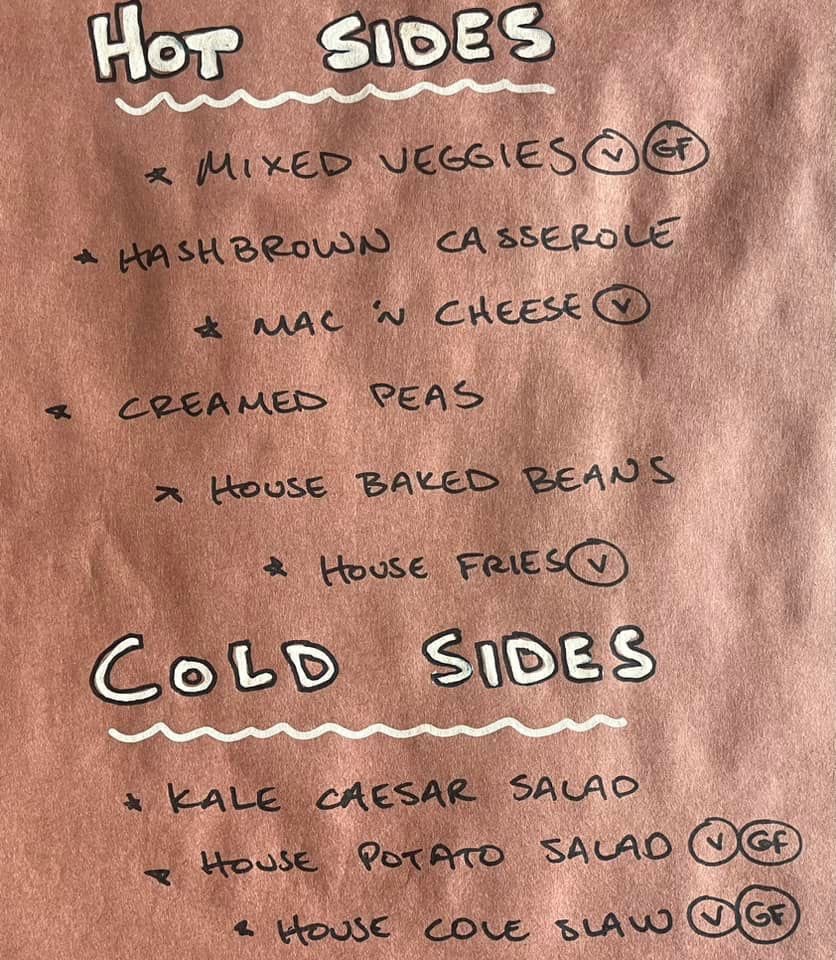 HOT SIDES
* MIXED VEGGIES V GF
* HASHBROWN CASSEROLE
* MAC 'N CHEESE V
* CREAMED PEAS
* HOUSE BAKED BEANS
* HOUSE FRIES V
COLD SIDES
* KALE CAESAR SALAD
* HOUSE POTATO SALAD V GF
* HOUSE COLE SLAW V GF